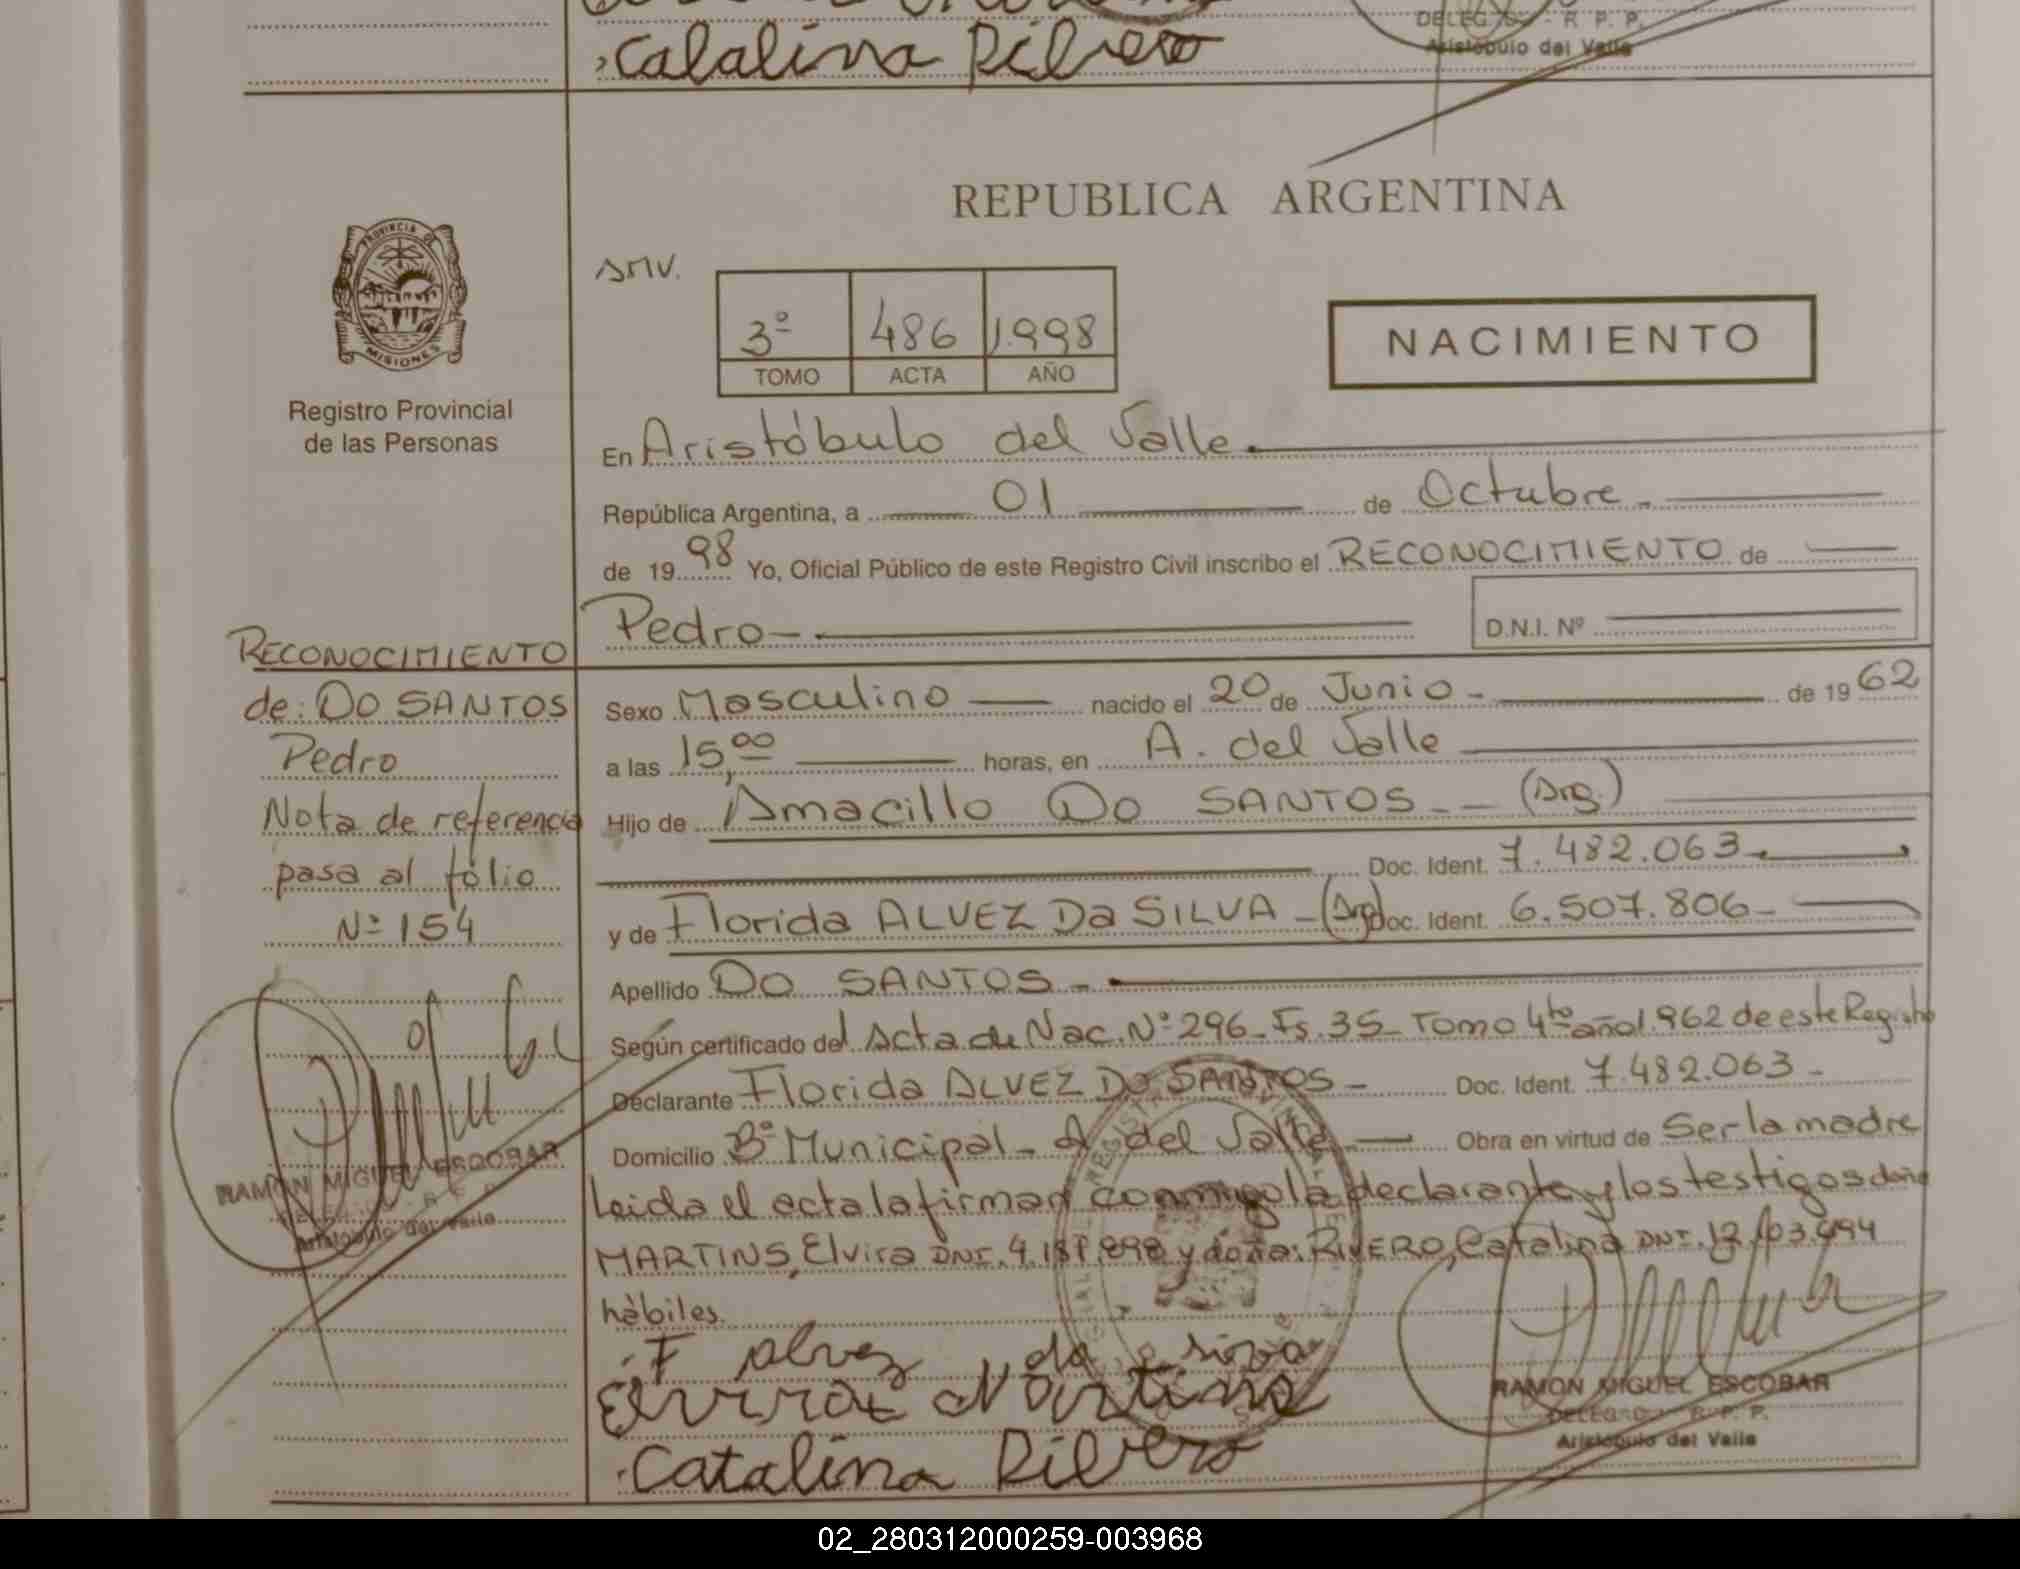 Catalina Rivero
DELEG. - R. P. P.
Aristóbulo del Valle
REPUBLICA ARGENTINA
PROVINCIA DE
MISIONES
Registro Provincial
de las Personas
SMV.
3º 486 1.998
TOMO ACTA AÑO
NACIMIENTO
En Aristóbulo del Valle.
República Argentina, a 01 de Octubre.
de 1998 Yo, Oficial Público de este Registro Civil inscribo el RECONOCIMIENTO de
Pedro
D.N.I. Nº
RECONOCIMIENTO
de: DO SANTOS
Pedro
Nota de referencia
pasa al fólio
Nº 154
RAMON MIGUEL ESCOBAR
Aristóbulo del Valle
Sexo Masculino nacido el 20 de Junio - de 1962
a las 15,00 horas, en A. del Valle
Hijo de Amacillo DO SANTOS - (Arg.)
Doc. Ident. 7.482.063
y de Florida ALVEZ Da SILVA - (Arg) Doc. Ident. 6.507.806-
Apellido DO SANTOS -
Según certificado del Acta de Nac. Nº 296 - Fs. 35 - Tomo 4to año 1.962 de este Registro
Declarante Florida ALVEZ DO SANTOS - Doc. Ident. 7.482.063 -
Domicilio Bº Municipal - A. del Valle - Obra en virtud de Ser la madre
Leida el acta la firman conmigo la declarante y los testigos doña
MARTINS, Elvira DNI. y doña: RIVERO, Catalina DNI.
hàbiles.
F alvez da silva
Elvira Martins
Catalina Rivero
RAMON MIGUEL ESCOBAR
DELEG. - R. P. P.
Aristóbulo del Valle
02_280312000259-003968